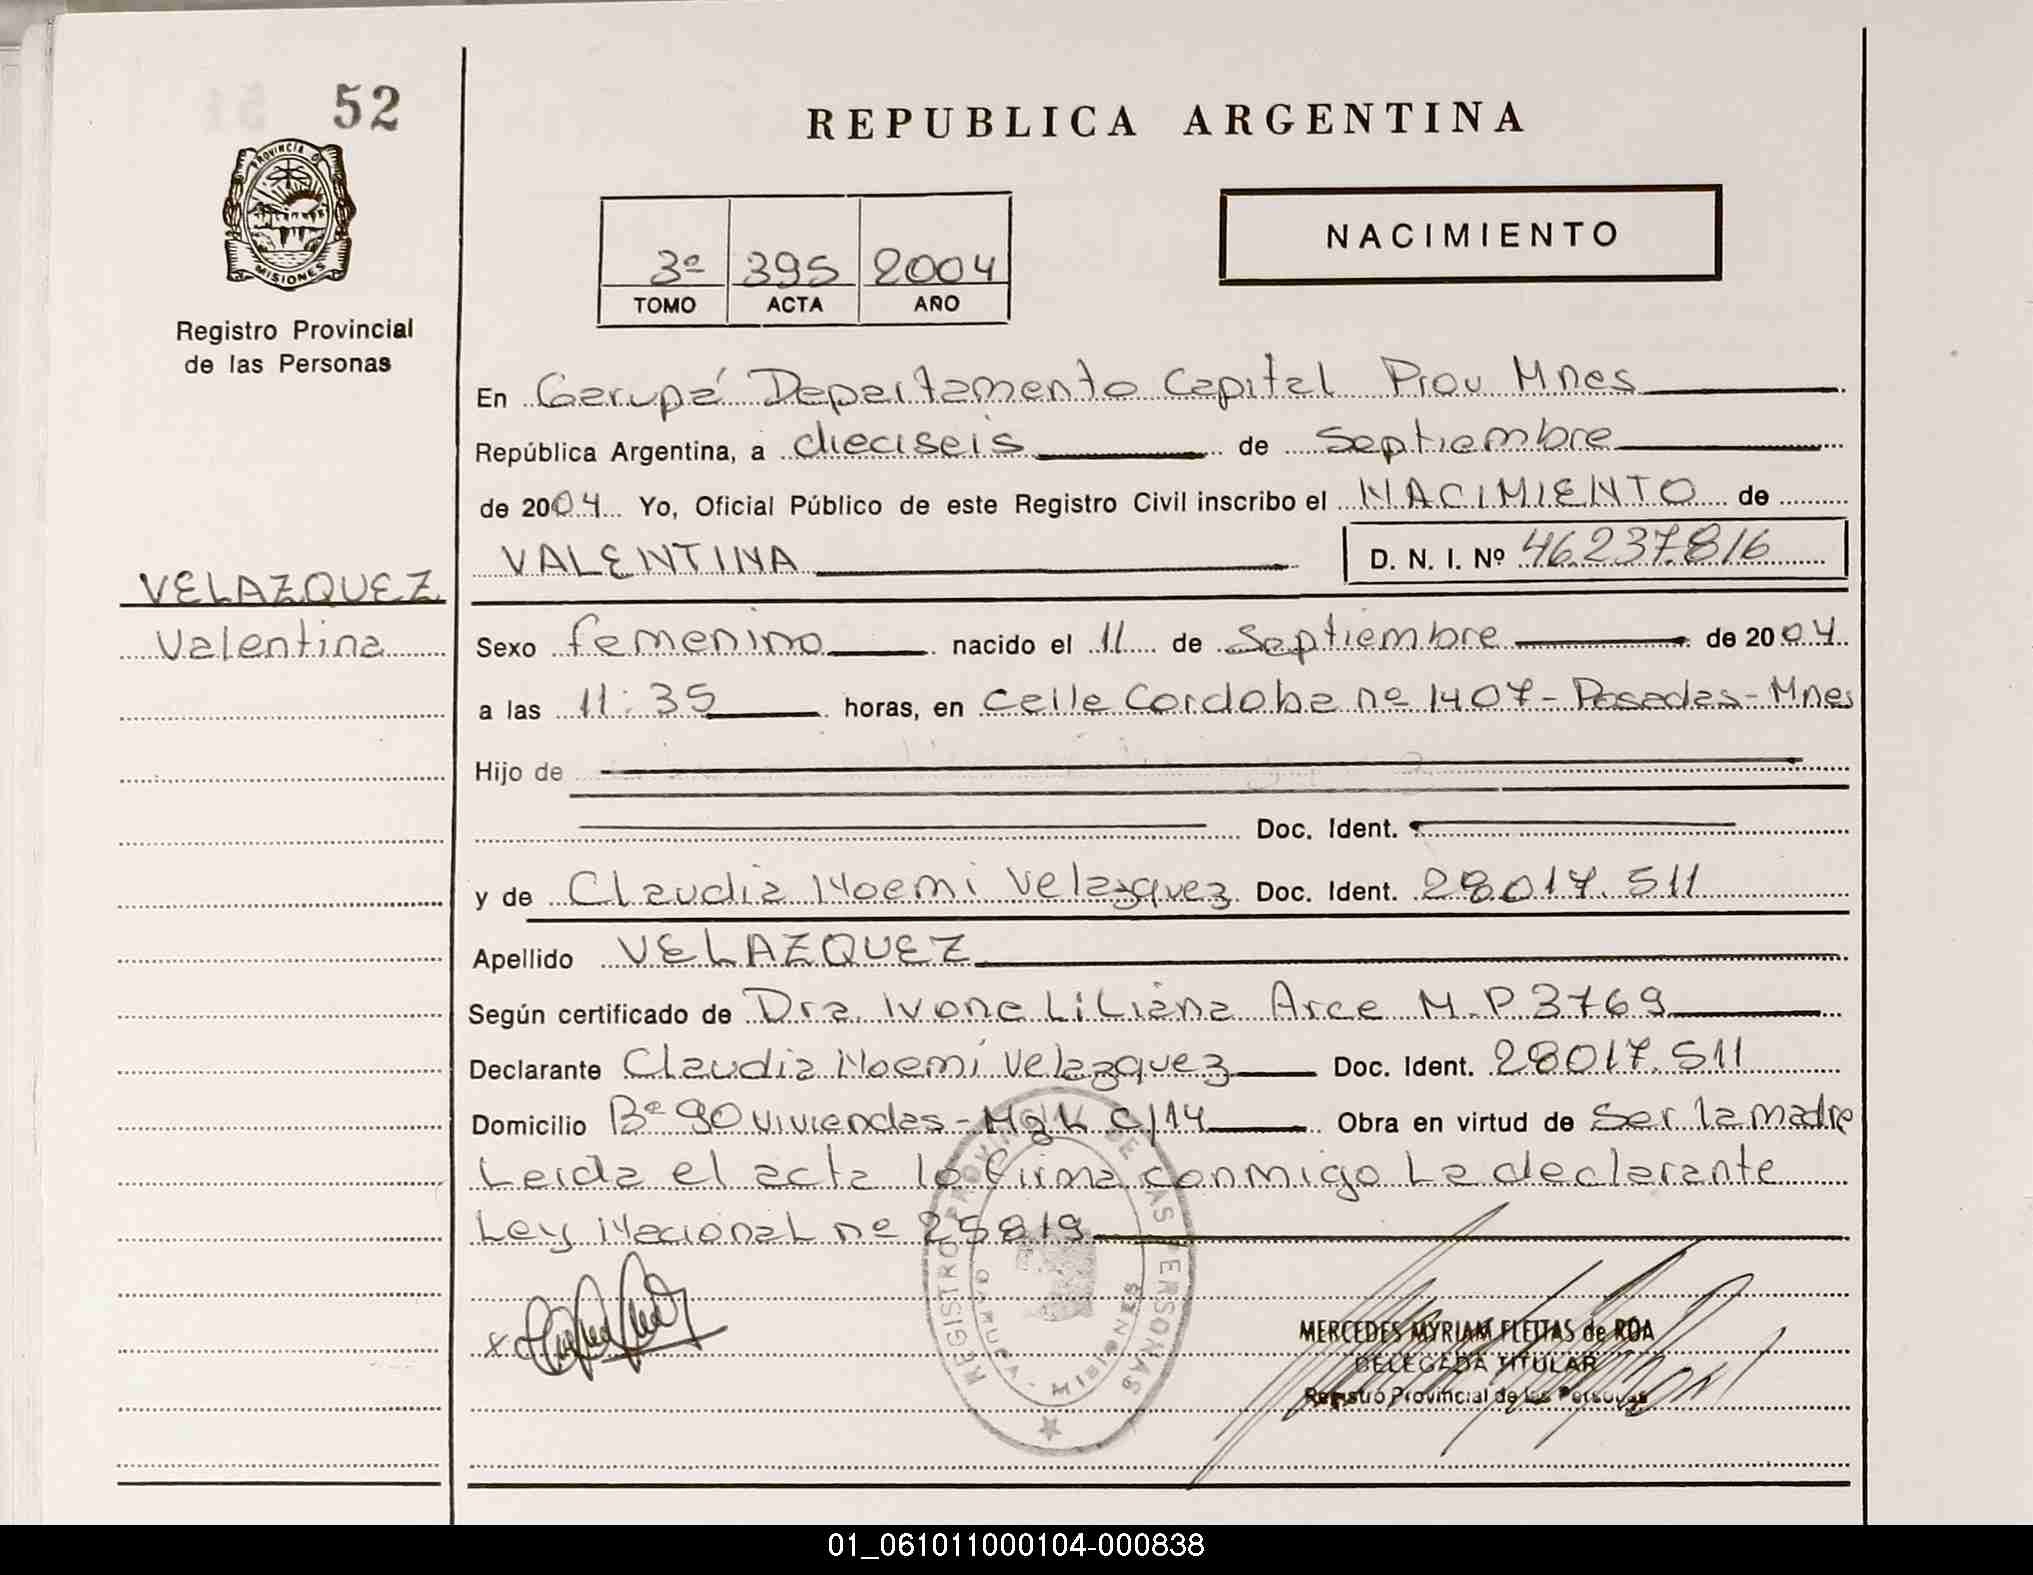 52
REPUBLICA ARGENTINA
PROVINCIA D
MISIONES
Registro Provincial
de las Personas
3º 395 2004
TOMO ACTA AÑO
NACIMIENTO
En Garupá Departamento Capital Prov Mnes
República Argentina, a dieciseis de Septiembre
de 2004 Yo, Oficial Público de este Registro Civil inscribo el NACIMIENTO de
VALENTINA D. N. I. Nº 46.237.816
VELAZQUEZ
Valentina
Sexo femenino nacido el 11 de Septiembre de 2004
a las 11:35 horas, en Calle Cordoba nº 1407 - Posadas - Mnes
Hijo de
Doc. Ident.
y de Claudia Noemi Velazquez Doc. Ident. 28017.511
Apellido VELAZQUEZ
Según certificado de Dra. Ivone Liliana Arce M.P 3769
Declarante Claudia Noemí Velazquez Doc. Ident. 28017.511
Domicilio Bº 90 Viviendas - Mz K C/14 Obra en virtud de Ser la madre
Leida el acta lo firma conmigo La declarante
Ley Nacional nº 25819
REGISTRO PROVINCIAL DE LAS PERSONAS
MISIONES
MERCEDES MYRIAM FLEITAS de ROA
DELEGADA TITULAR
Registro Provincial de las Personas
01_061011000104-000838